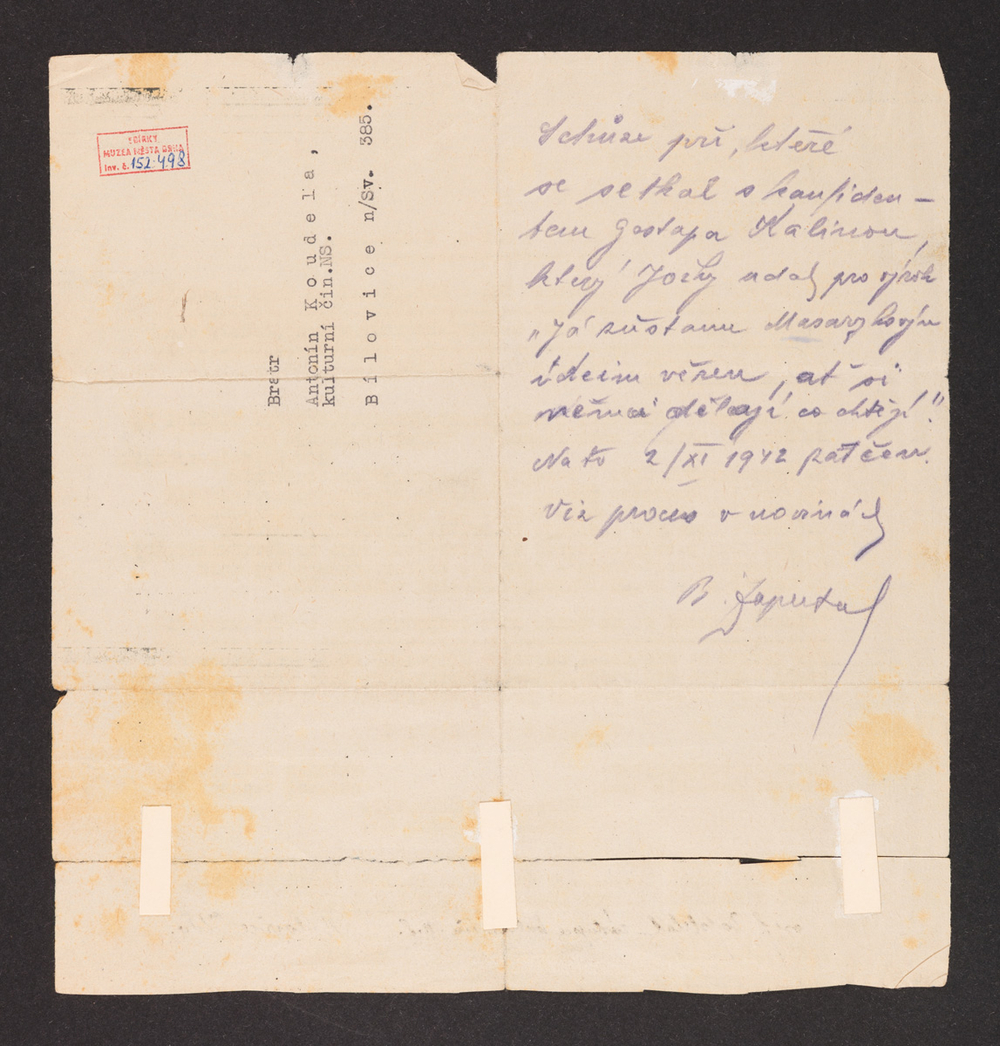 SBÍRKY
MUZEA MĚSTA BRNA
Inv. č. 152.498
Bratr
Antonín Koudela,
kulturní čin.NS.
Bílovice n/Sv. 385.
Schůze při, které
se setkal s konfiden-
tem Gestapa Kalinou,
který Jožky udal pro výrok
„Já zůstanu Masarykovým
ideím věren, at si
dělají co chtějí."
Na to 2/XI 1942 zatčen.
Viz proces v novinách